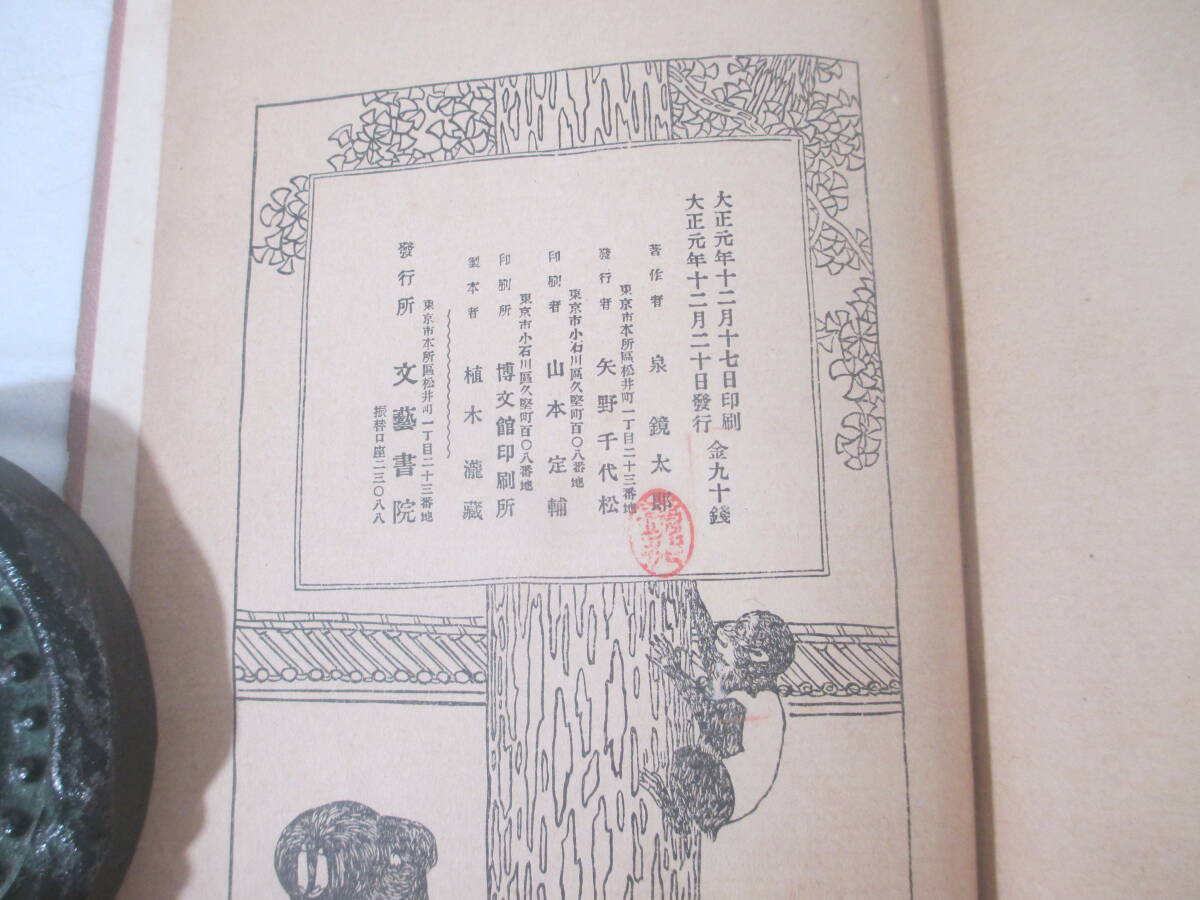 大正元年十二月十七日印刷
大正元年十二月二十日發行
金九十錢
著作者 泉鏡太郎
東京市本所區松井町一丁目二十三番地
發行者 矢野千代松
東京市小石川區久堅町百〇八番地
印刷者 山本定輔
東京市小石川區久堅町百〇八番地
印刷所 博文館印刷所
製本者 植木瀧藏
東京市本所區松井町一丁目二十三番地
發行所 文藝書院
振替口座二三〇八八